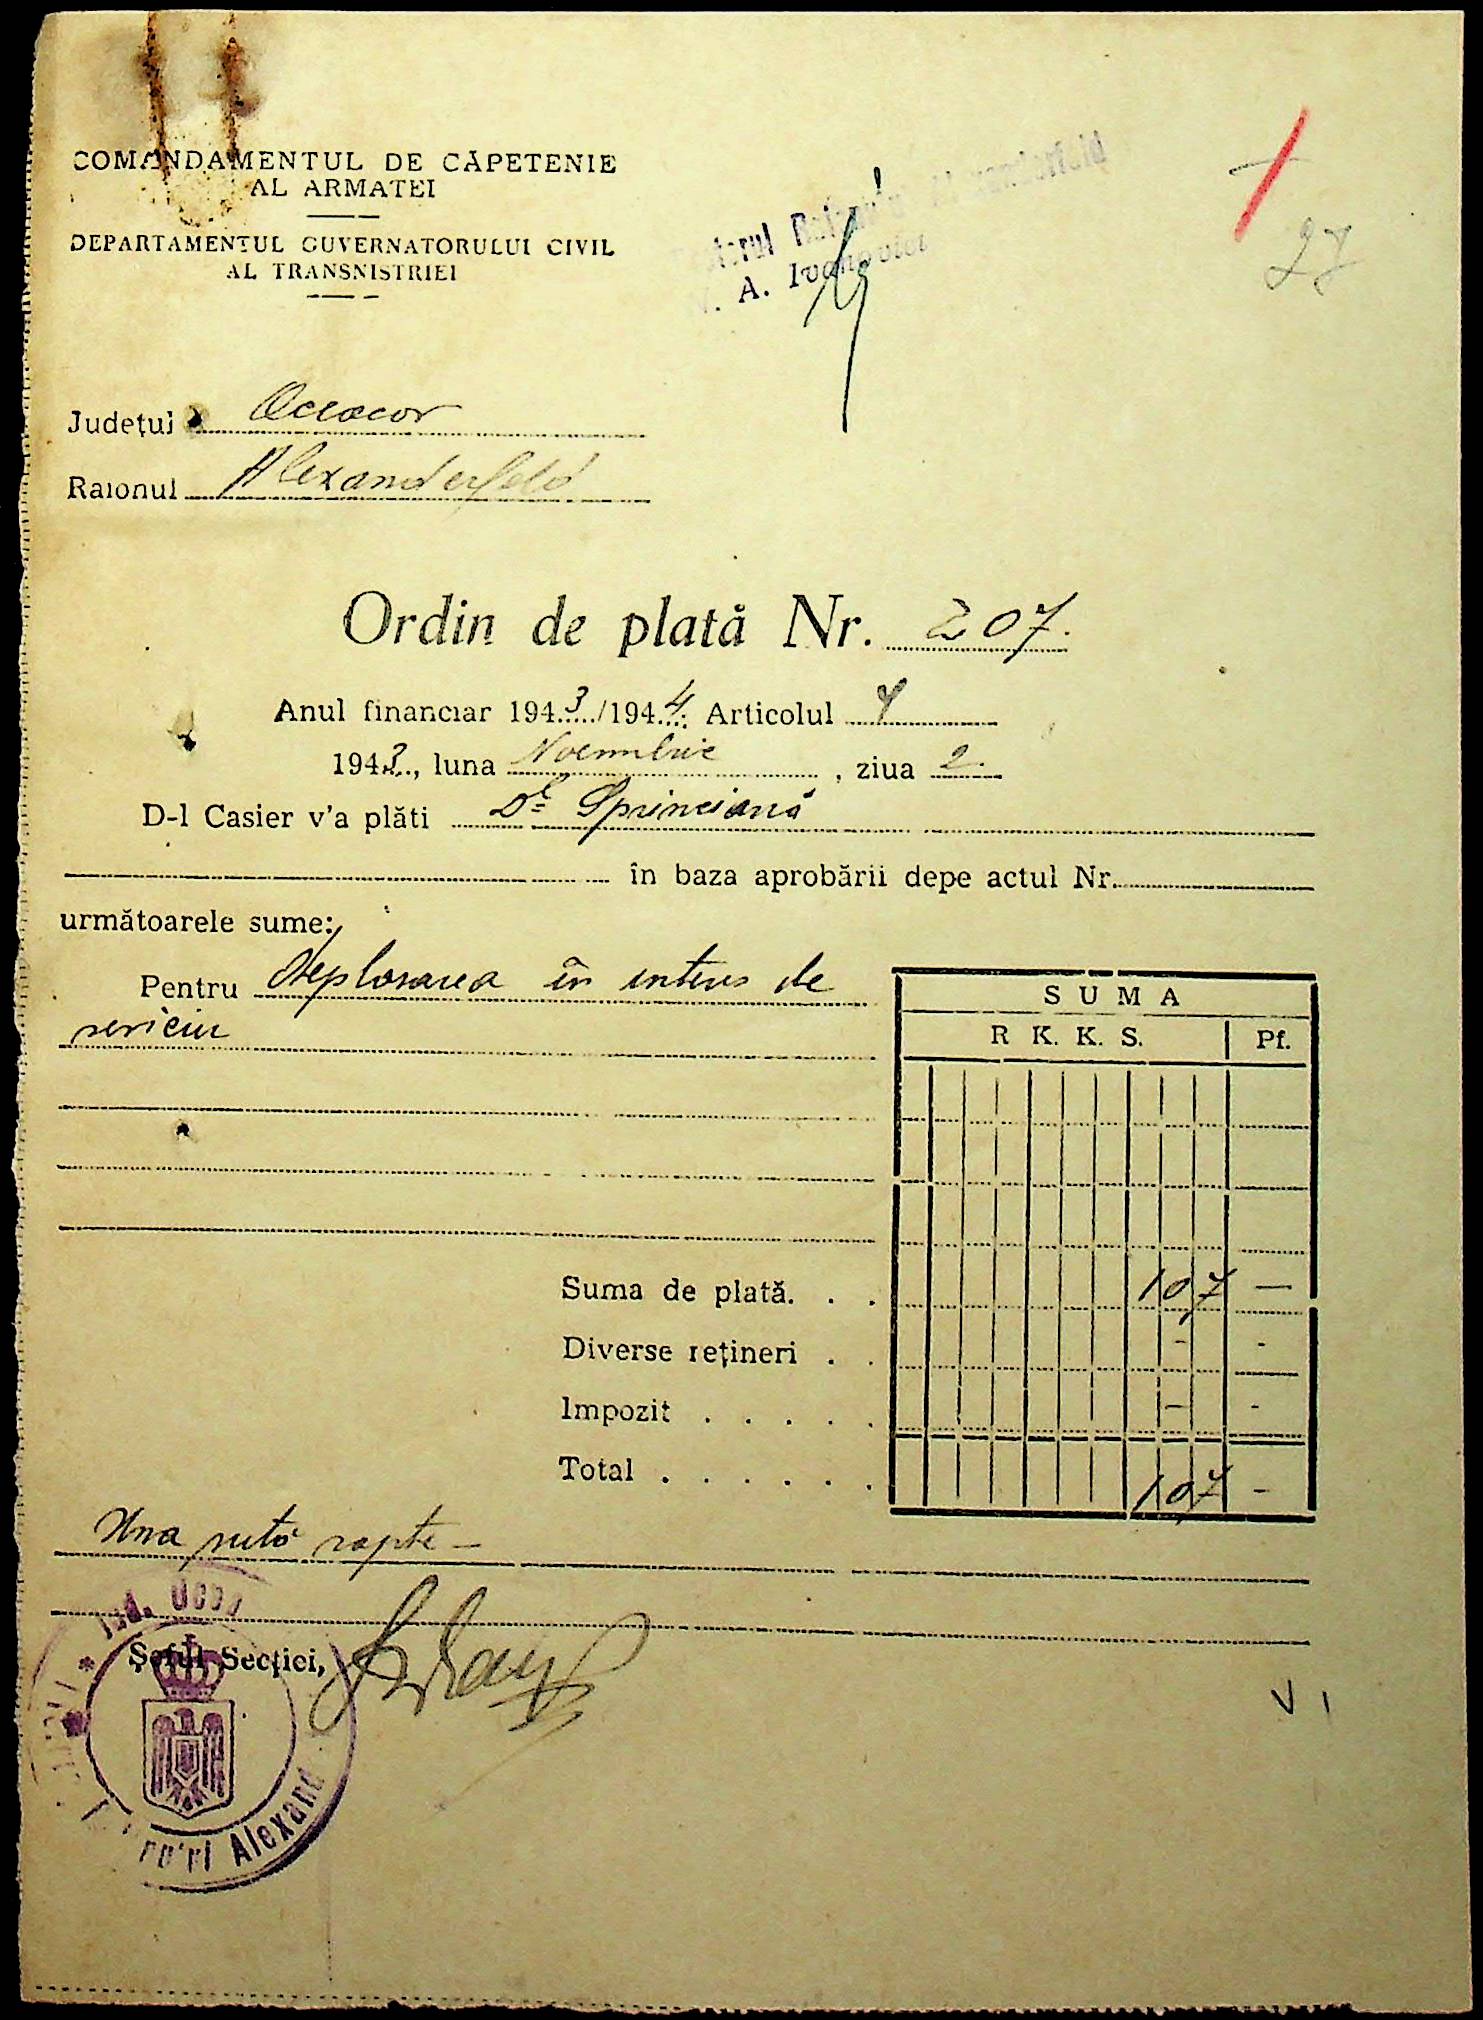 COMANDAMENTUL DE CĂPETENIE
AL ARMATEI
DEPARTAMENTUL GUVERNATORULUI CIVIL
AL TRANSNISTRIEI
A. Ivanovici
27
Județul Oceacov
Raionul Alexanderfeld
Ordin de plată Nr. 207.
Anul financiar 1943/1944 Articolul 4
1943, luna Noembrie, ziua 2.
D-l Casier v'a plăti Dl Sprinceană
în baza aprobării depe actul Nr.
următoarele sume:
Pentru Deplasarea în interes de
serviciu
SUMA
R K. K. S. Pf.
Suma de plată. . . 107 —
Diverse rețineri . . - -
Impozit . . . . . - -
Total . . . . . . 107 -
Una sută șapte —
Jud. Ocea
Șeful Secției,
Alexand